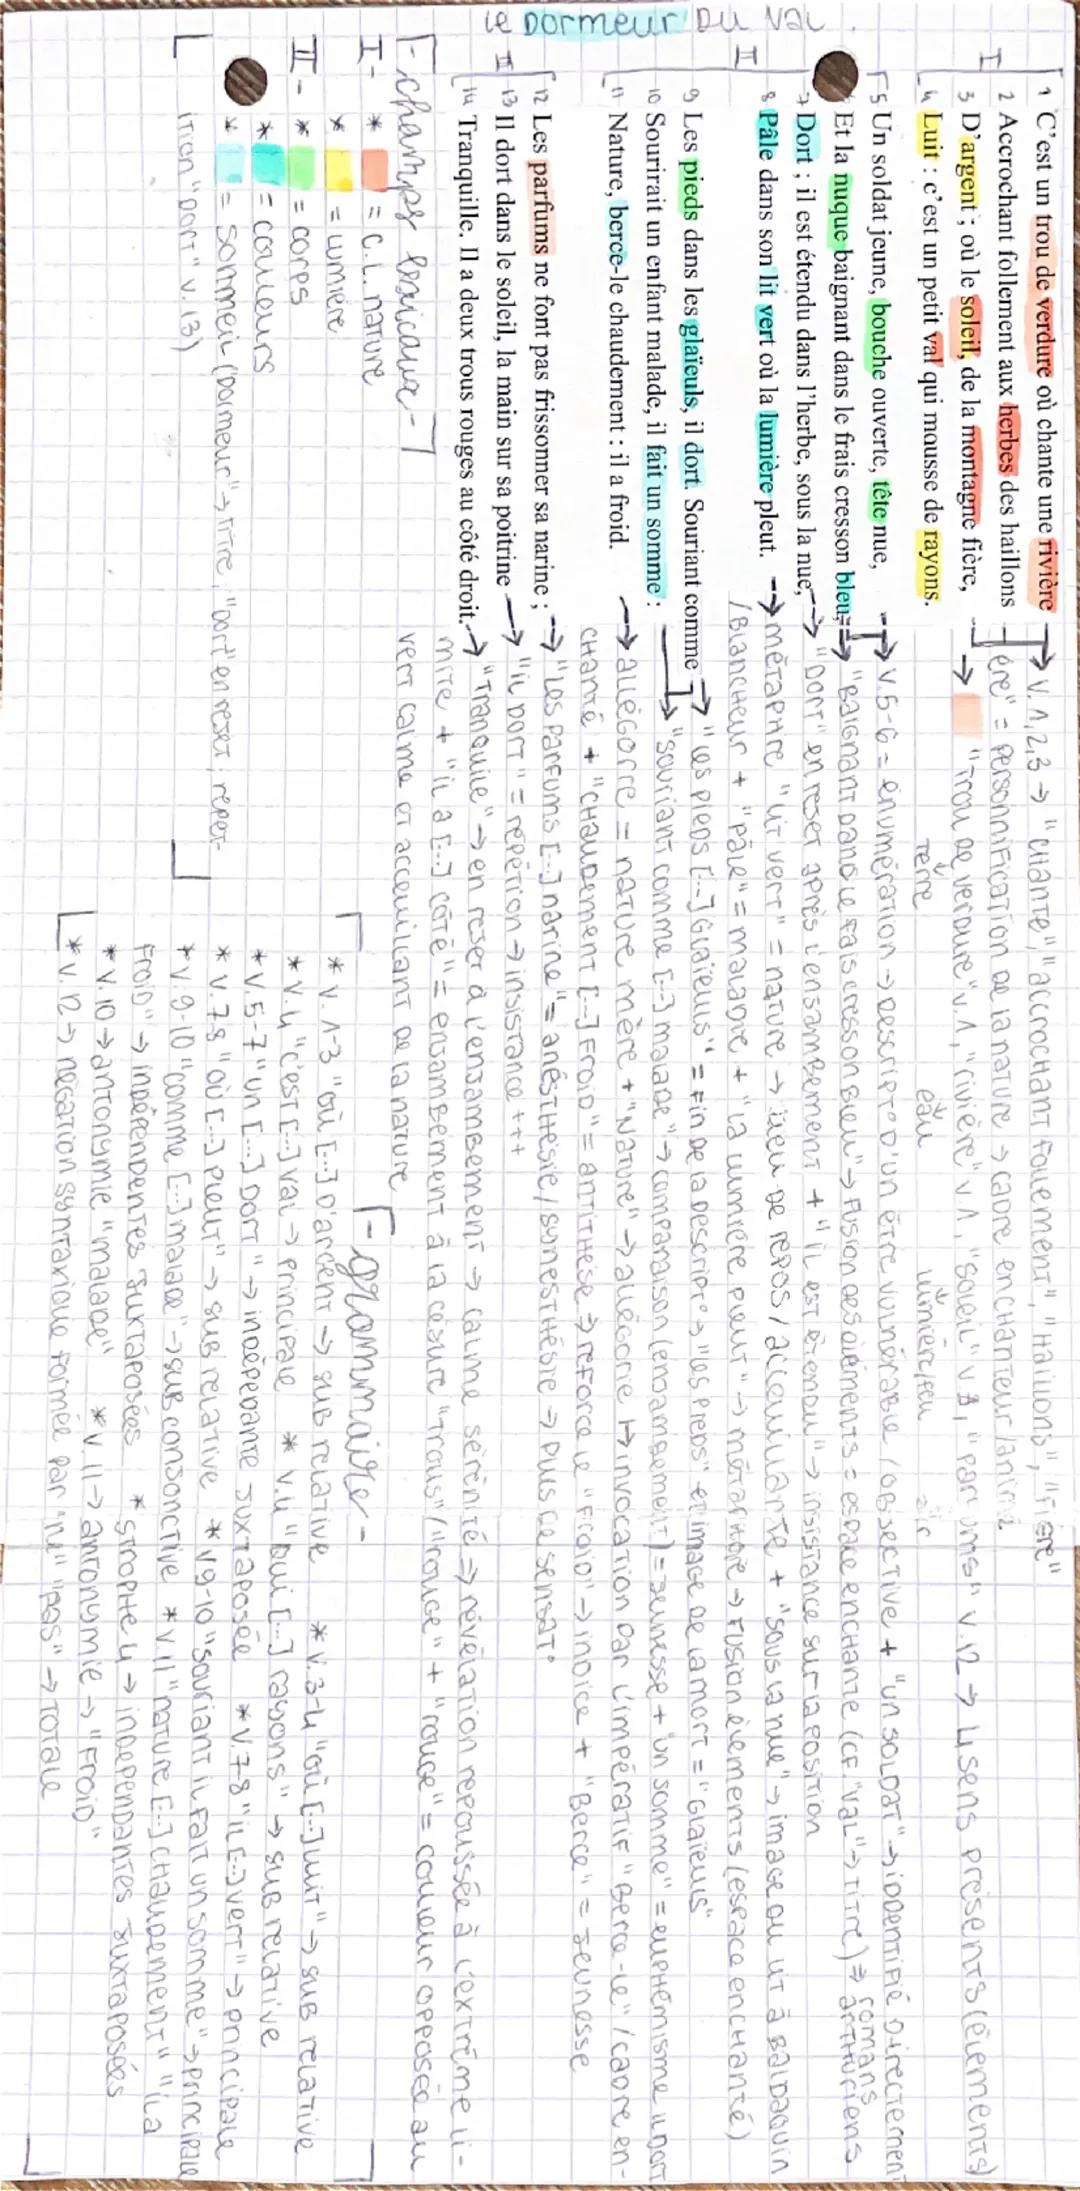 Le Dormeur Du Val.
I
1 C'est un trou de verdure où chante une rivière
2 Accrochant follement aux herbes des haillons
3 D'argent ; où le soleil, de la montagne fière,
4 Luit : c'est un petit val qui mousse de rayons.
II
5 Un soldat jeune, bouche ouverte, tête nue,
Et la nuque baignant dans le frais cresson bleu,
7 Dort ; il est étendu dans l'herbe, sous la nue,
8 Pâle dans son lit vert où la lumière pleut.
9 Les pieds dans les glaïeuls, il dort. Souriant comme
10 Sourirait un enfant malade, il fait un somme :
11 Nature, berce-le chaudement : il a froid.
II
12 Les parfums ne font pas frissonner sa narine ;
13 Il dort dans le soleil, la main sur sa poitrine
14 Tranquille. Il a deux trous rouges au côté droit.
→ v.1,2,3 → "chante", "accrochant follement", "haillons", "fi ère"
ère" = personnification de la nature → cadre enchanteur/animé
→ "trou de verdure" v.1, "rivière" v.1, "soleil" v 3, "parfums" v.12 → 4 sens présents (élements)
terre eau lumière/feu air
→ v.5-6 = énumération → descript° d'un être vulnérable / objective + "un soldat" → identifié directement
→ "Baignant dans le frais cresson bleu" → Fusion des éléments = espace enchanté (cf "val" → titre) ⇒ romans arthuriens
→ "Dort" en rejet après l'enjambement + "il est étendu" → insistance sur la position
→ métaphore "lit vert" = nature → lieu de repos / accueillante + "sous la nue" → image du lit à baldaquin
/Blancheur + "pâle" = maladie + "la lumière pleut" → métaphore → fusion éléments (espace enchanté)
→ "les pieds [...] Glaïeuls" = fin de la descript° → "les pieds" et image de la mort = "Glaïeuls"
→ "souriant comme [...] malade" → comparaison (enjambement) = jeunesse + "un somme" = euphémisme il dort
→ allégorie = nature mère + "Nature" → allégorie ↦ invocation par l'impératif "Berce-le" / cadre en-
chanté + "chaudement [...] Froid" = antithèse → renforce le "Froid" → indice + "Berce" = jeunesse
→ "Les parfums [...] narine" = anésthésie / synesthésie → plus de sensat°
→ "il dort" = répétion → insistance +++
→ "Tranquille" → en rejet à l'enjambement → calme sérénité → révélation repoussée à l'extrême li-
mite + "il a [...] côté" = enjambement à la césure "trous" / "rouge" + "rouge" = couleur opposée au
vert calme et accueillant de la nature
- champs lexicaux -
I- * = C.L. nature
* = lumière
II- * = corps
* = couleurs
* = sommeil (dormeur" → titre ; "dort" en rejet ; répet-
ition "dort" v.13)
- grammaire -
* v.1-3 "où [...] D'argent → sub relative * v.3-4 "où [...] luit" → sub relative
* v.4 "c'est [...] val → principale * v.4 "qui [...] rayons" → sub relative
* v.5-7 "un [...] Dort" → indépendante juxtaposée * v.7-8 "il [...] vert" → principale
* v.7 8 "où [...] pleut" → sub relative * v9-10 "souriant il fait un somme" → principale
* v.9-10 "comme [...] malade" → sub conjonctive * v.11 "nature [...] chaudement" "il a
Froid" → indépendentes juxtaposées * strophe 4 → independantes juxtaposées
* v.10 → antonymie "malade" * v.11 → antonymie → "Froid"
* v.12 → négation syntaxique formée par "ne" "pas" → totale